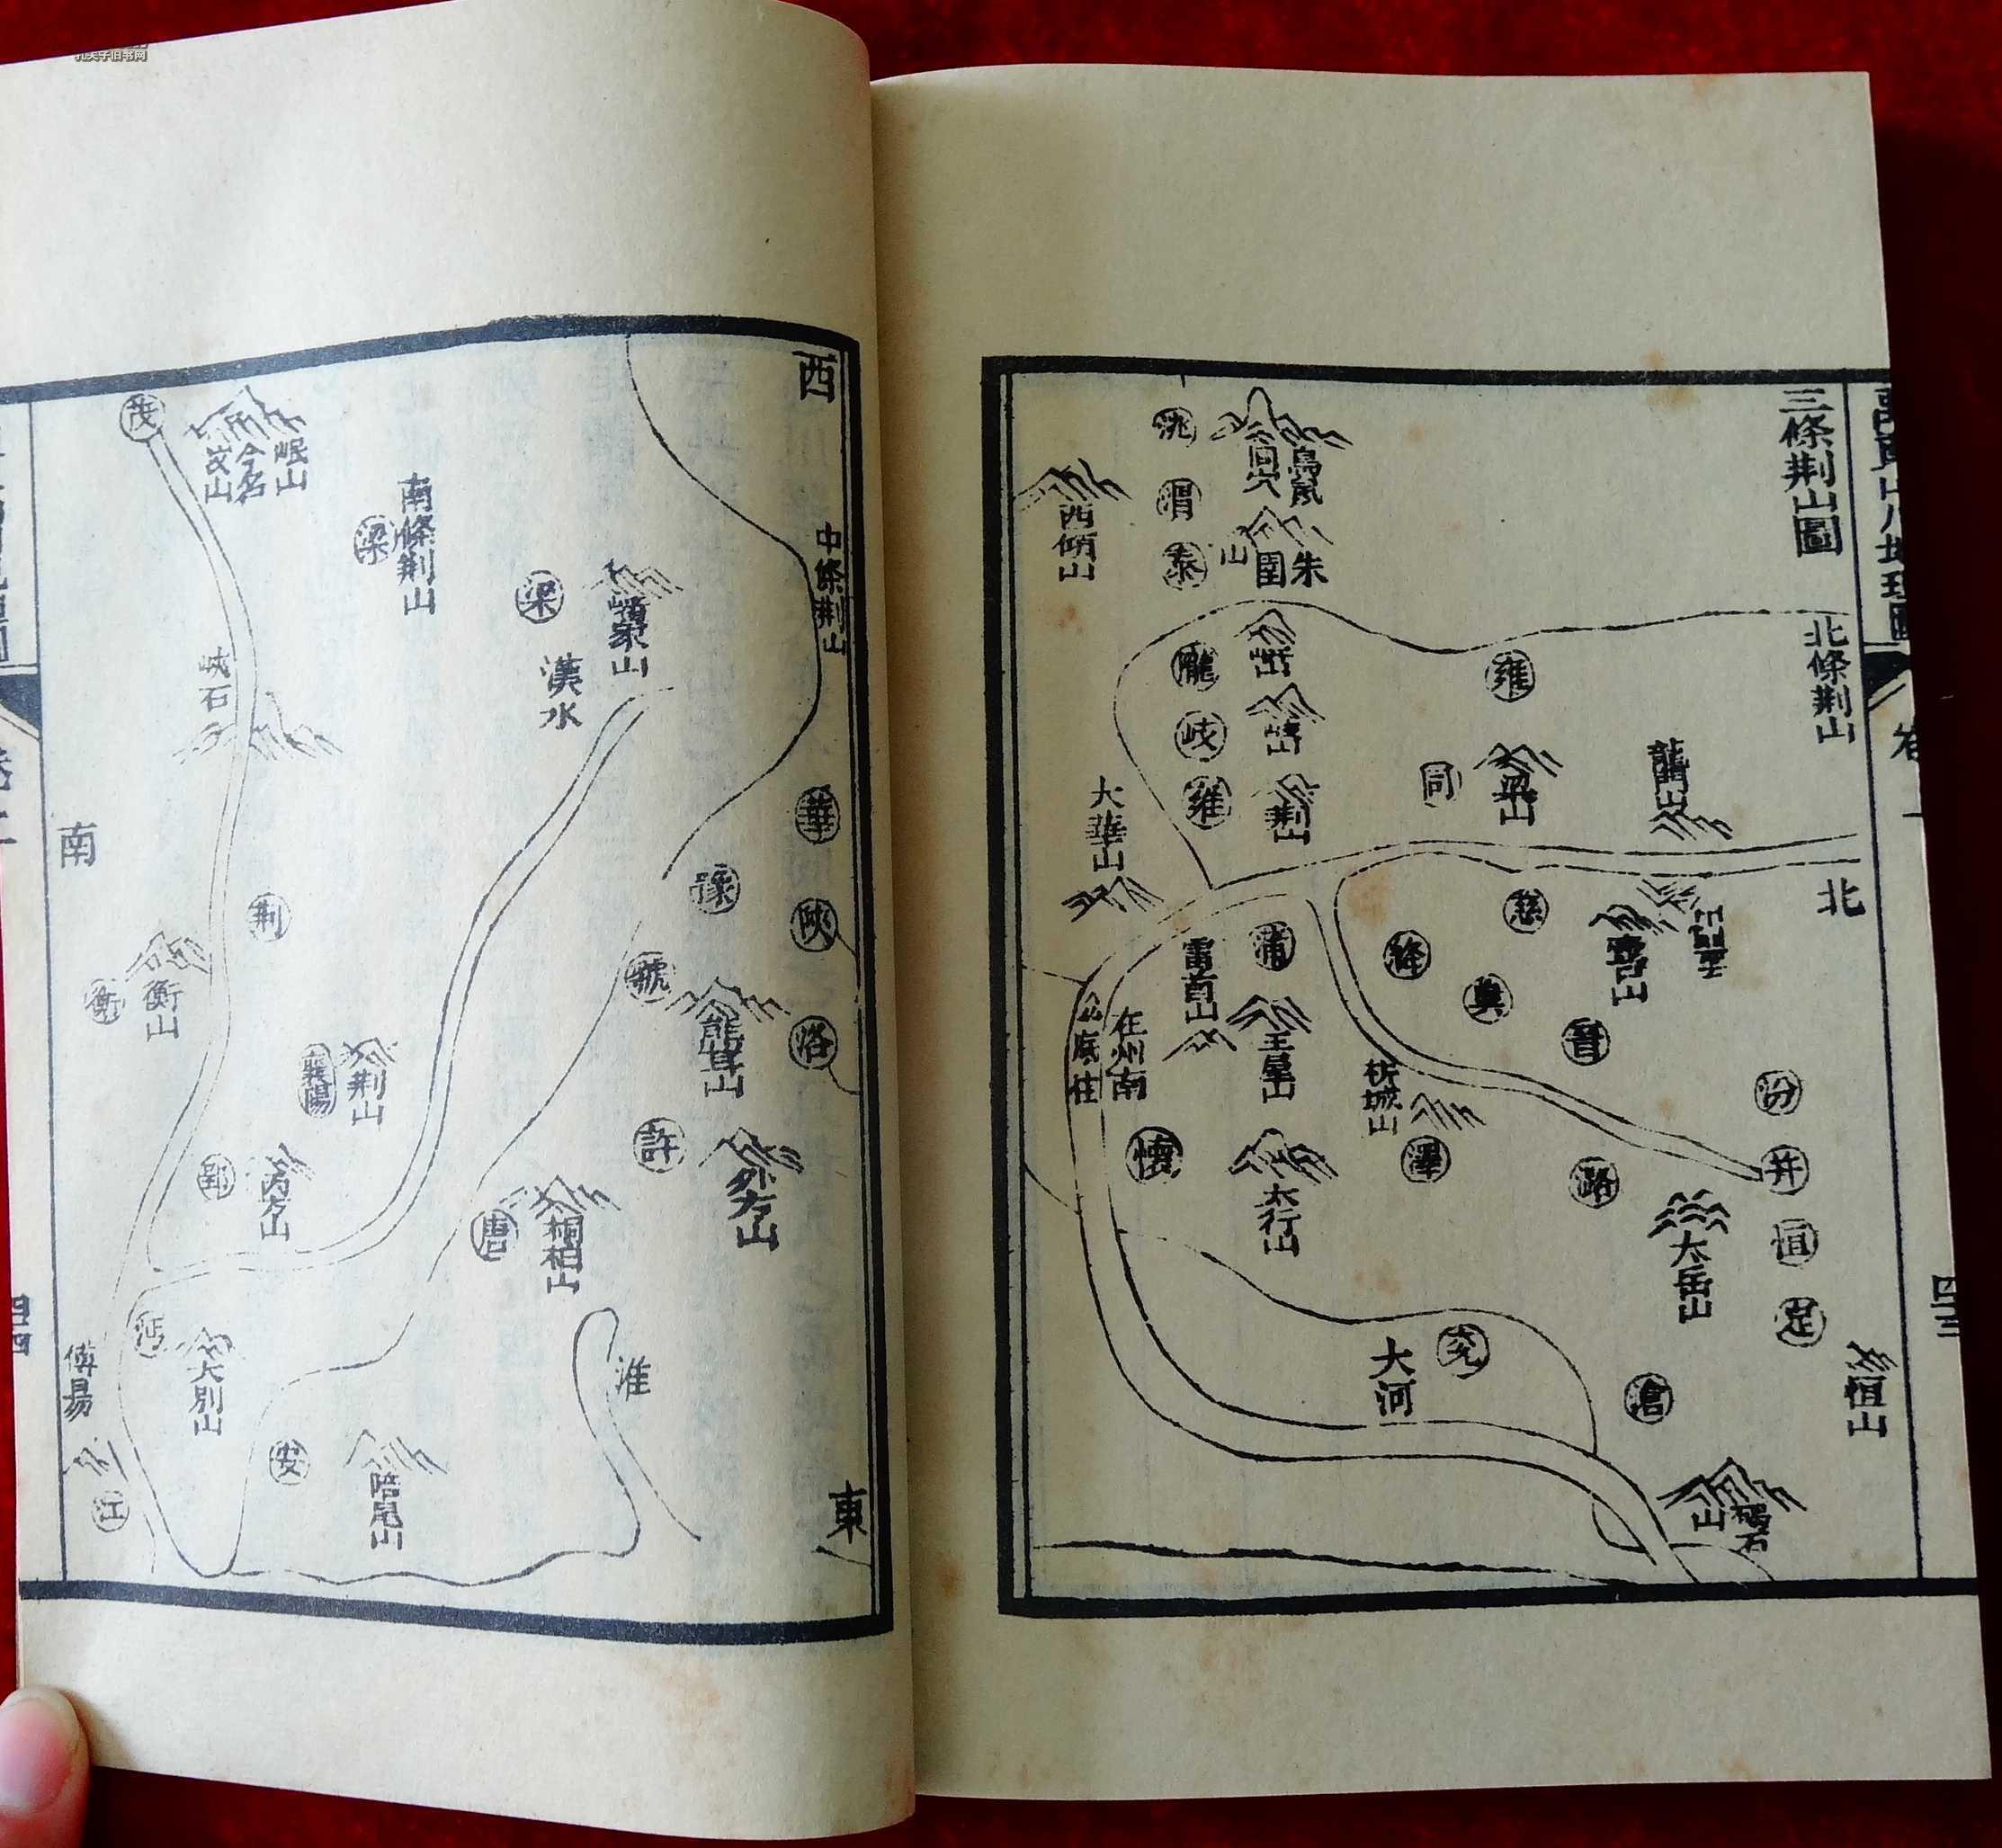 三條荆山圖
北條荆山
北
四三
恒山
汾
并
恒
定
太岳山
碣石
山
滄
龍門山
壺口山
慈
雍
梁山
同
絳
冀
晉
潞
析城山
澤
兖
大河
鳥鼠
同穴
朱
圉
山
荆山
蒲
王屋山
太行山
洮
渭
秦
隴
岐
雍
雷首山
在州南
底柱
懷
西傾山
大華山
西
中條荆山
華
陝
洛
東
豫
虢
熊耳山
許
外方山
嶓冢山
漢水
梁
桐柏山
唐
淮
南條荆山
梁
荆山
襄陽
陪尾山
安
岷山
今名
汶山
茂
峽石
荆
衡山
衡
内方山
郢
大別山
沔
南
江
四四
孔夫子旧书网